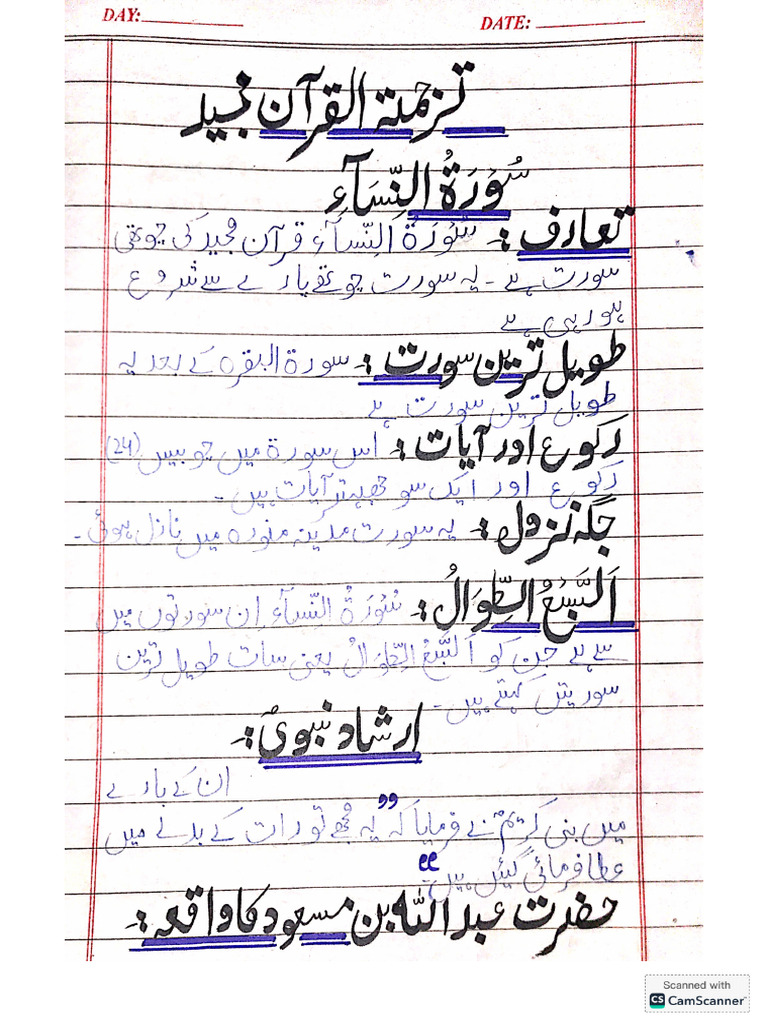 DAY:
DATE:
ترجمۃ القرآن مجید
سُوْرَۃُ النِّسَآءِ
تعارف :۔ سُوْرَۃُ النِّسَآءِ قرآن مجید کی چوتھی
سورت ہے ۔ یہ سورت چوتھے پارے سے شروع
ہورہی ہے
طویل ترین سورت :۔ سورۃ البقرہ کے بعد یہ
طویل ترین سورت ہے
رکوع اور آیات :۔ اس سورۃ میں چوبیس (24)
رکوع اور ایک سو چھہتر آیات ہیں ۔
جگہ نزول :۔ یہ سورت مدینہ منورہ میں نازل ہوئی ۔
اَلسَّبْعُ الطِّوَالُ :۔ سُوْرَۃُ النِّسَآءِ ان سورتوں میں
سے ہے جن کو اَلسَّبْعُ الطِّوَالُ یعنی سات طویل ترین
سورتیں کہتے ہیں ۔
ارشاد نبویؐ :۔
ان کے بارے
میں نبی کریمؐ نے فرمایا کہ ”یہ مجھے تورات کے بدلے میں
عطا فرمائی گئیں ہیں“
حضرت عبداللہ بن مسعود کا واقعہ :۔
Scanned with
CS CamScanner